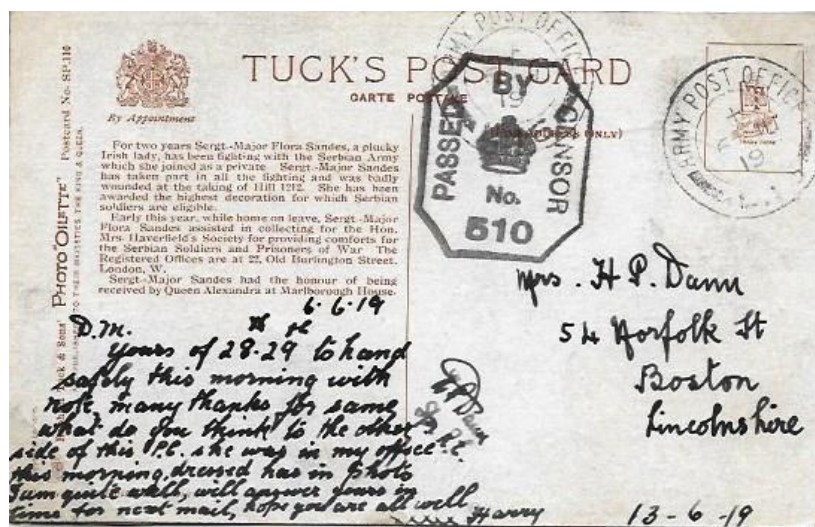 TUCK'S POST CARD
CARTE POSTALE
(FOR ADDRESS ONLY)
By Appointment
Postcard No. SP.110
PHOTO "OILETTE"
TO THEIR MAJESTIES THE KING & QUEEN.
Tuck & Sons'
For two years Sergt.-Major Flora Sandes, a plucky
Irish lady, has been fighting with the Serbian Army
which she joined as a private Sergt.-Major Sandes
has taken part in all the fighting and was badly
wounded at the taking of Hill 1212. She has been
awarded the highest decoration for which Serbian
soldiers are eligible.
Early this year, while home on leave, Sergt.-Major
Flora Sandes assisted in collecting for the Hon.
Mrs. Haverfield's Society for providing comforts for
the Serbian Soldiers and Prisoners of War The
Registered Offices are at 22, Old Burlington Street.
London, W.
Sergt-Major Sandes had the honour of being
received by Queen Alexandra at Marlborough House.
ARMY POST OFFICE
19
PASSED BY CENSOR
No.
510
ARMY POST OFFICE
19
6.6.19
D.M.
Yours of 28th 29th to hand
safely this morning with
note, many thanks for same
what do you think to the other
side of this P.C. she was in my office
this morning, dressed has in photo
I am quite well, will answer yours in
time for next mail, hope you are all well
Harry
H P Dann
Mrs. H P. Dann
54 Norfolk St
Boston
Lincolnshire
13-6-19